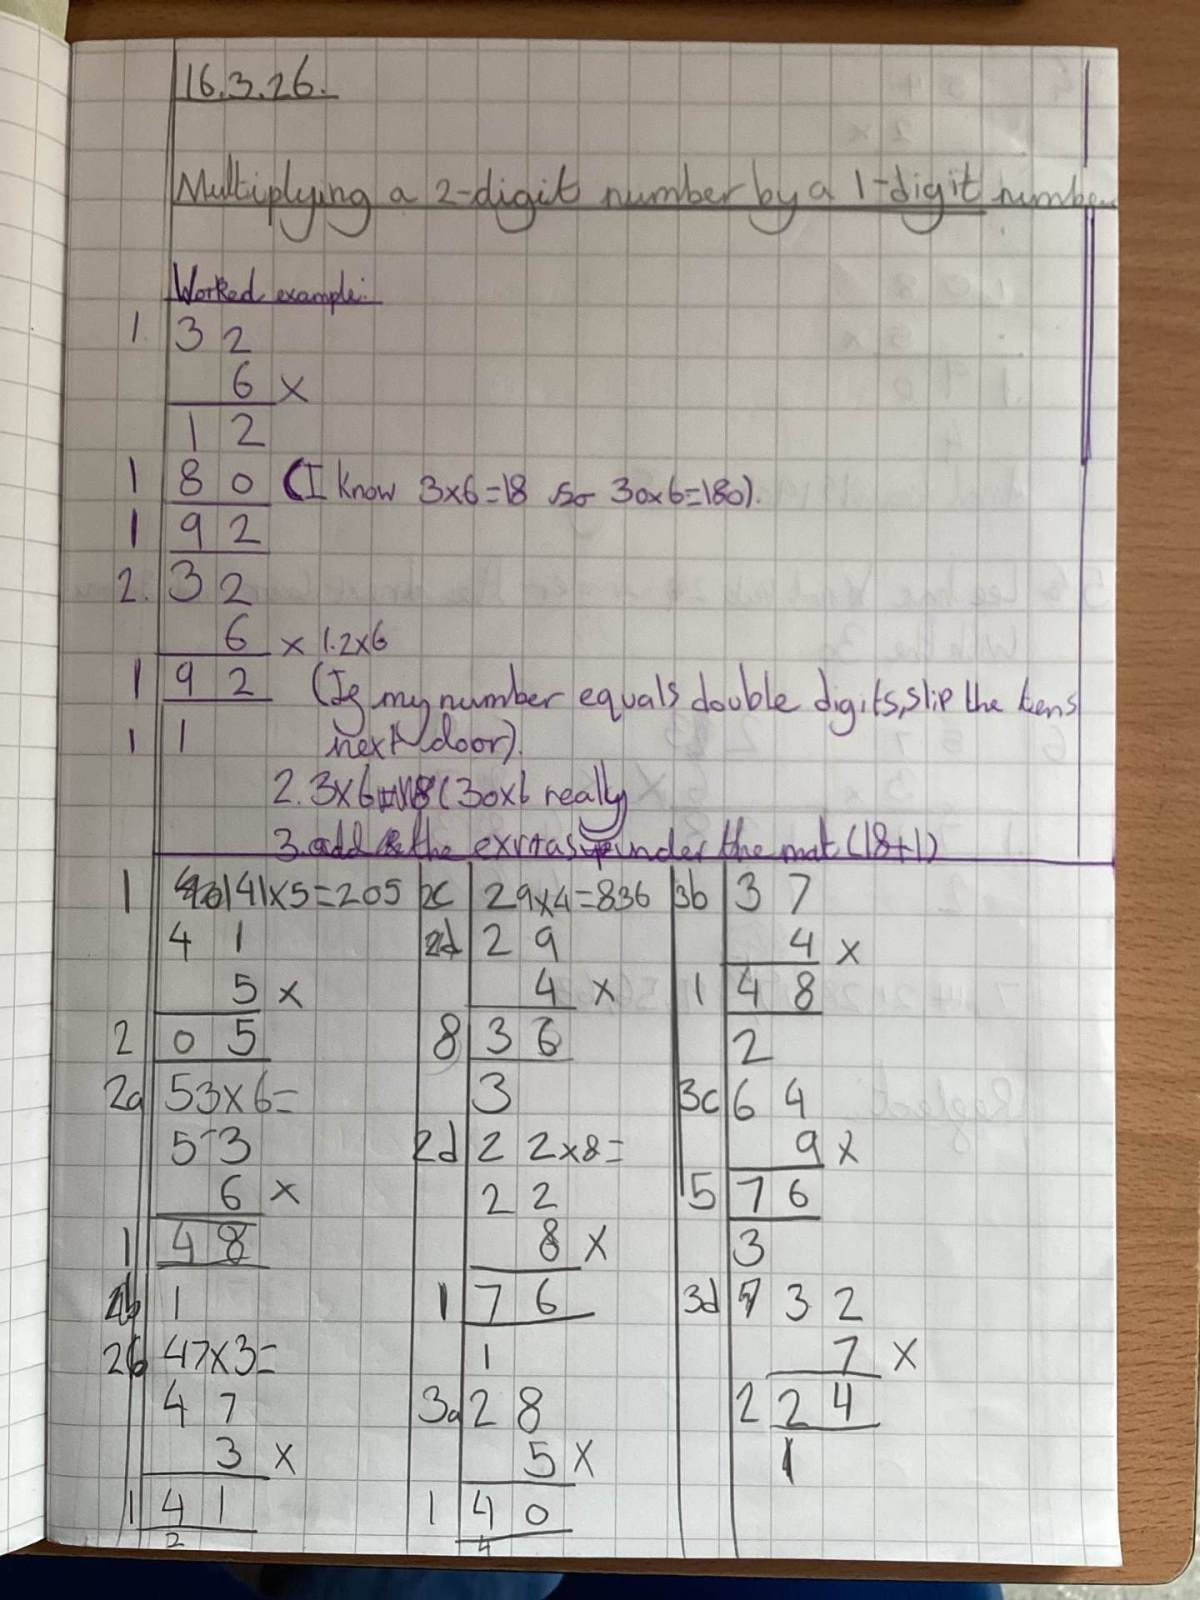 16.3.26.
Multiplying a 2-digit number by a 1-digit number
Worked example:
1. 3 2
6 x
1 2
1 8 0 (I know 3x6=18 so 30x6=180).
1 9 2
2. 3 2
6 x 1.2x6
1 9 2 (If my number equals double digits, slip the tens
1 1 next door).
2. 3x6=18 (30x6 really
3. add the exrtas under the mat (18+1)
1 41x5=205
4 1
5 x
2 0 5
2a 53x6=
5 3
6 x
1 4 8
1
2b 47x3=
4 7
3 x
1 4 1
2
2c 29x4=836
2d 2 9
4 x
8 3 6
3
2d 2 2x8=
2 2
8 x
1 7 6
1
3a 2 8
5 x
1 4 0
4
3b 3 7
4 x
1 4 8
2
3c 6 4
9 x
5 7 6
3
3d 3 2
7 x
2 2 4
1